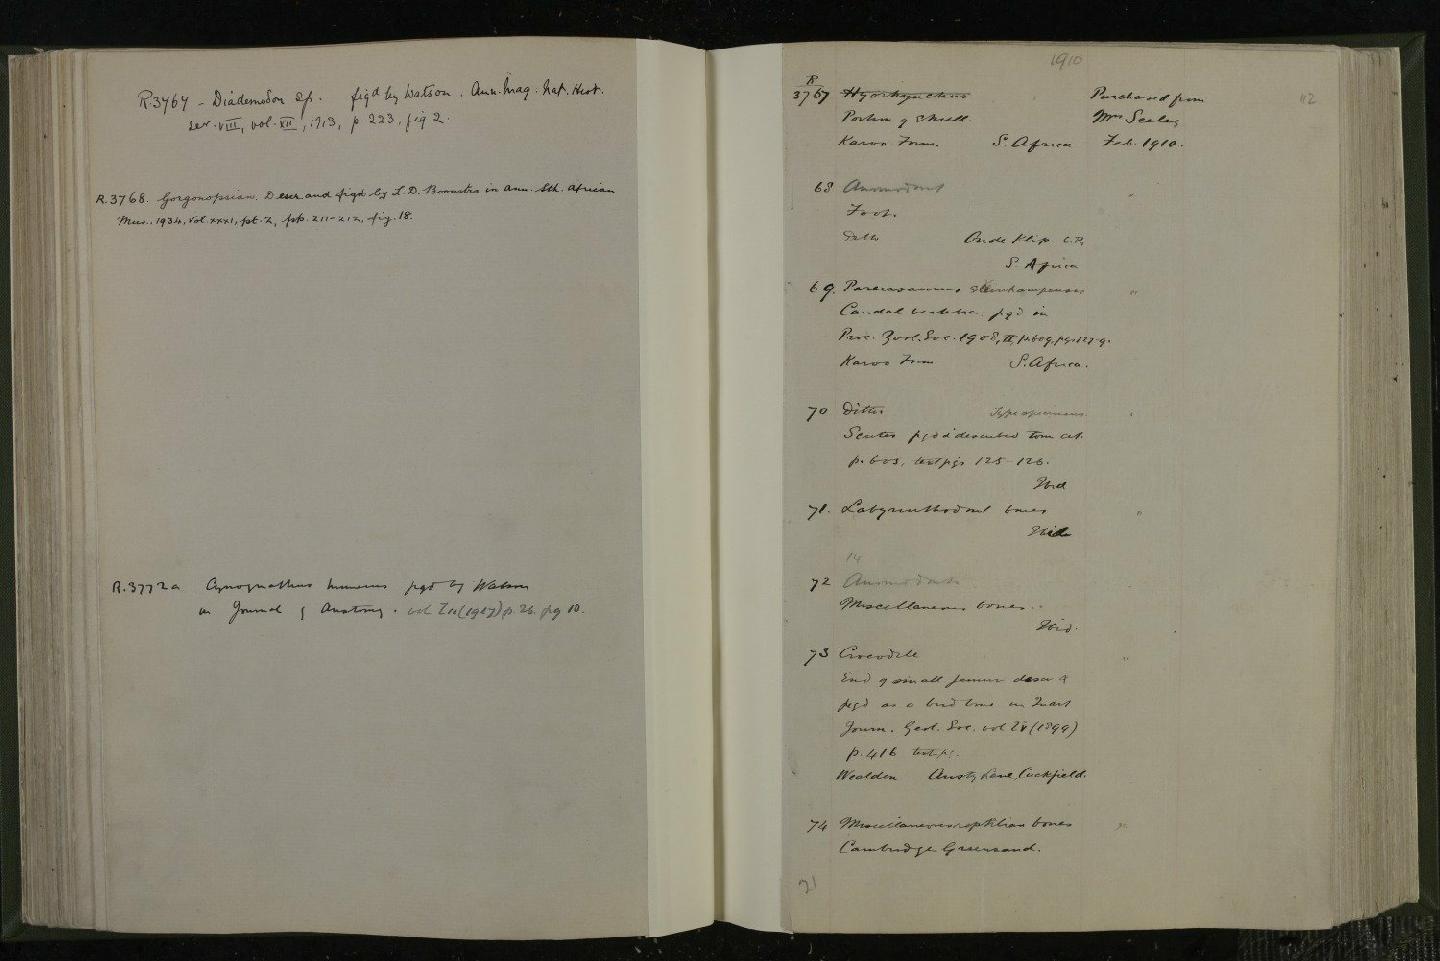 R.3767 - Diademodon sp. figd by Watson. Ann. Mag. Nat. Hist.
ser. VIII, vol. XII, 1913, p 223, fig 2.
R.3768. Gorgonopsian. Descr and figd by L.D. Boonstra in Ann. Sth. African
Mus. 1934, vol. xxxi, pt. 2, pp. 211-212, fig. 18.
R.3772a Cynognathus humerus figd by Watson
in Journal of Anatomy. vol (1917) p. 26. fig 10.
1910
R
3767
Portion of skull
Karoo Form. S. Africa
Purchased from
Mrs Seeley
Feb. 1910.
112
68 Anomodont
Foot.
Ditto Oude Klip C.P.
S. Africa
"
69. Pareiasaurus
Caudal vertebra figd in
Proc. Zool. Soc. 1908, II, p.609, figs 127-9.
Karoo Form S. Africa.
"
70 Ditto Type specimens
Scutes figd & described tom cit.
p. 605, text figs 125-126.
Ibid
"
71. Labyrinthodont bones
Ibid
"
14
72 Anomodonts
Miscellaneous bones..
Ibid.
73 Crocodile
End of small femur descr &
figd as a bird bone in Quart
Journ. Geol. Soc. vol LV (1899)
p. 416 text fig.
Wealden Ansty Lane, Cuckfield.
"
74 Miscellaneous reptilian bones
Cambridge Greensand.
"
21